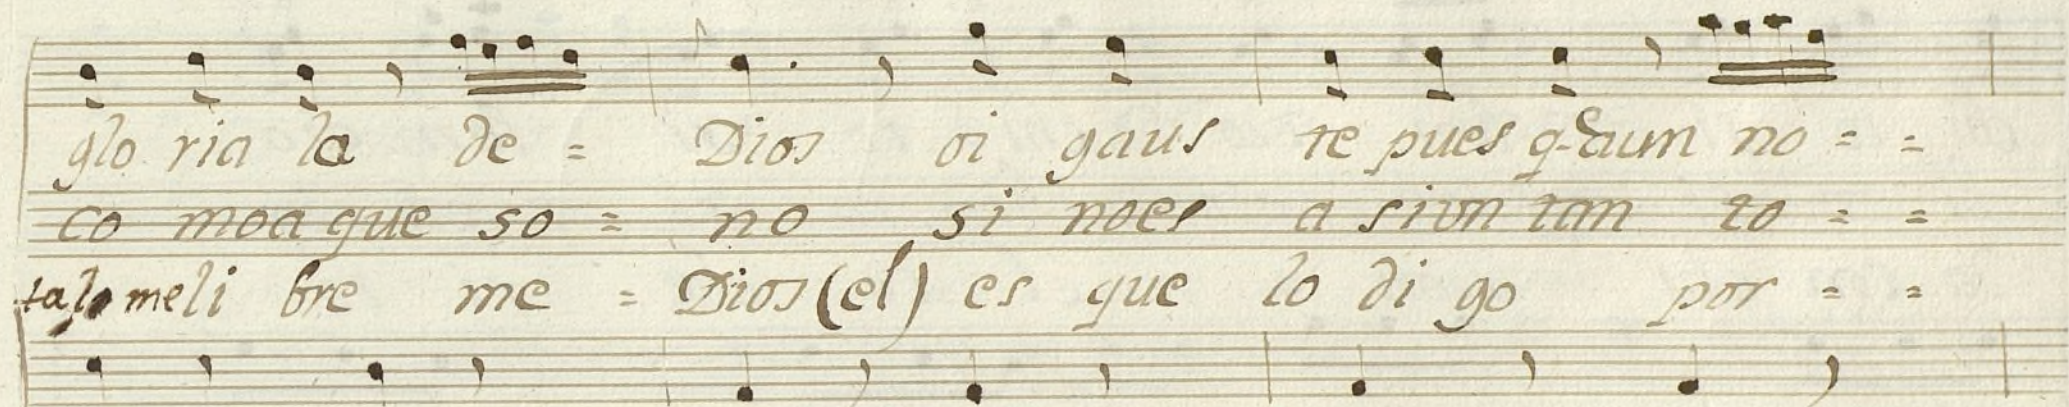 glo ria la de = Dios oi gaus te pues q.e aum no = =
co moa que so = no si noes a siun tan to = =
talo meli bre me = Dios (el) es que lo di go por = =